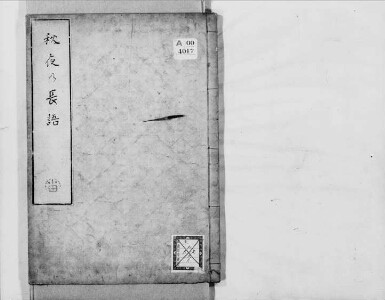 秋夜乃長語
A 00
4017